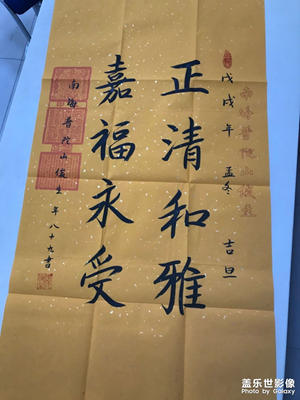 戊戌年 孟冬 吉旦
正清和雅
嘉福永受
南海普陀山
年八十九書
盖乐世影像
Photo by Galaxy